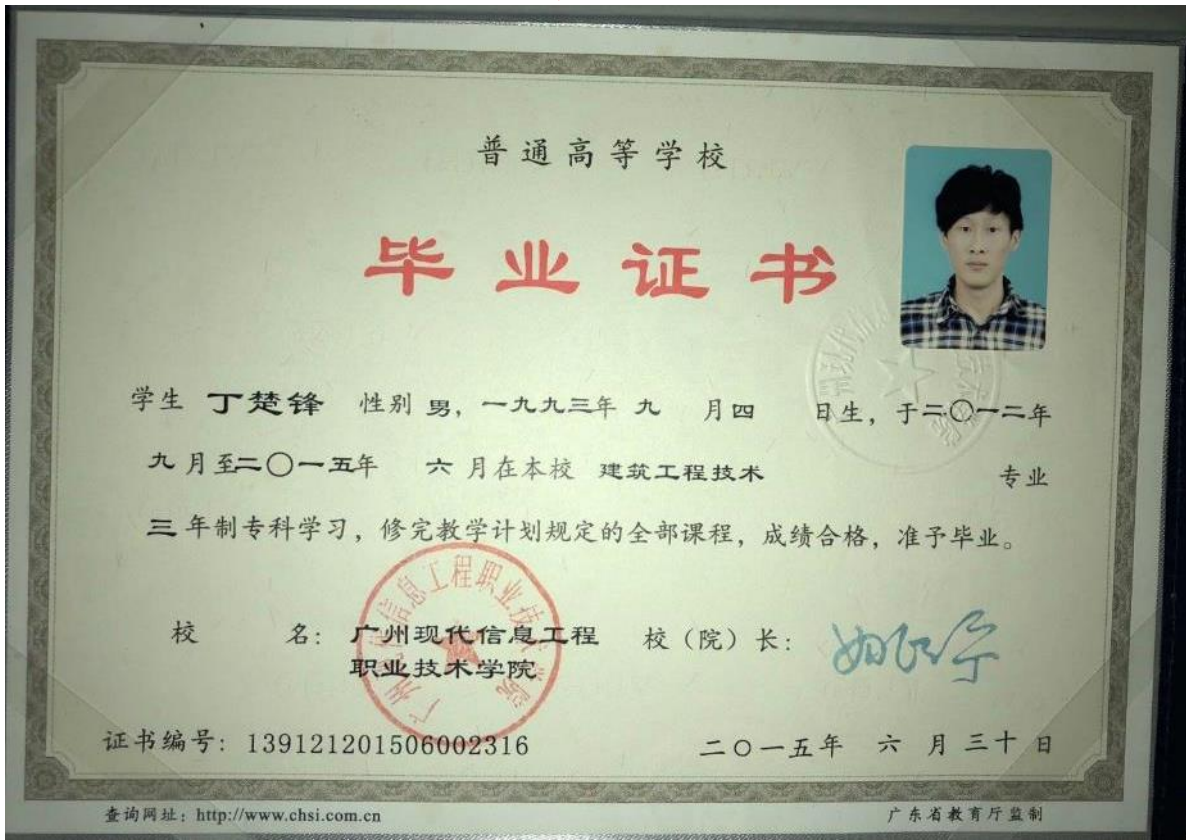 普通高等学校
毕业证书
学生 丁楚锋 性别 男，一九九三年 九 月四 日生，于二〇一二年
九 月至二〇一五年 六 月在本校 建筑工程技术 专业
三 年制专科学习，修完教学计划规定的全部课程，成绩合格，准予毕业。
校 名： 广州现代信息工程 校（院）长：
职业技术学院
广州现代信息工程职业技术学院
证书编号：139121201506002316 二〇一五年 六 月 三十 日
查询网址：http://www.chsi.com.cn 广东省教育厅监制